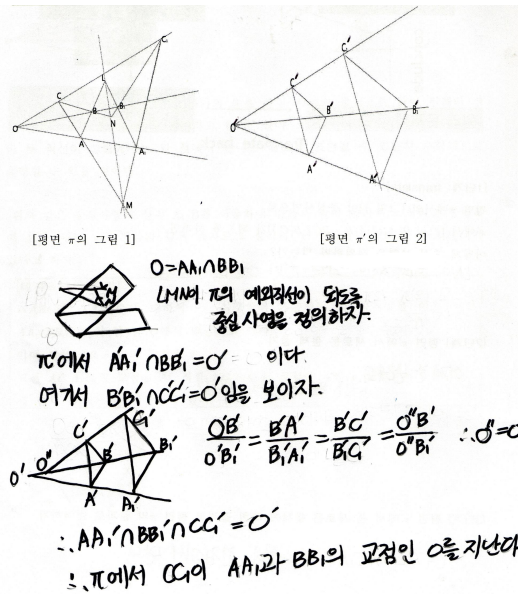 C₁
C
L
B
B₁
N
O
A
A₁
M
C₁'
C'
O'
B'
B₁'
A'
A₁'
[평면 π의 그림 1]
[평면 π'의 그림 2]
O=AA₁∩BB₁
LMN이 π의 예외직선이 되도록
중심 사영을 정의하자.
π'에서 A'A₁'∩BB₁'=O' 이다.
여기서 B'B₁'∩C'C₁'=O'임을 보이자.
C₁'
C'
O'
O''
B'
B₁'
A'
A₁'
O'B'/O'B₁' = B'A'/B₁'A₁' = B'C'/B₁'C₁' = O''B'/O''B₁' ∴O''=O
∴AA₁'∩BB₁'∩CC₁'=O'
∴π에서 CC₁이 AA₁과 BB₁의 교점인 O를 지난다